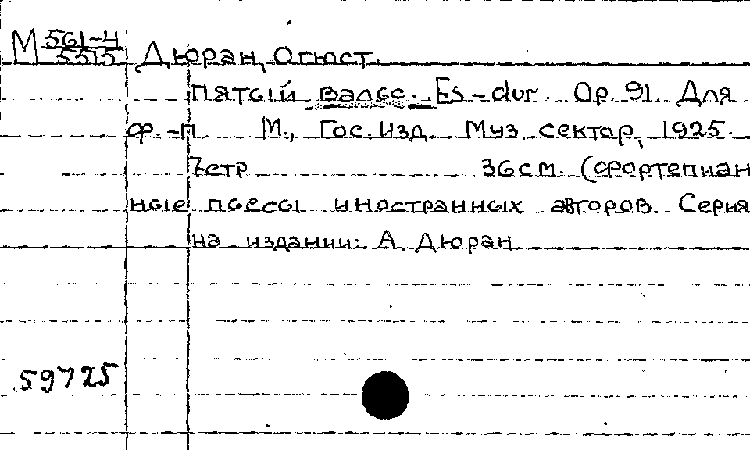 М 561-4
5515
Дюран, Огюст.
пятый вальс. Es-dur. Op. 91. Для
ф.-п. М., Гос. Изд. Муз. сектор, 1925.
7стр 36см. (фортепиан
ные пьесы иностранных авторов. Серия
на издании: А. Дюран
59725